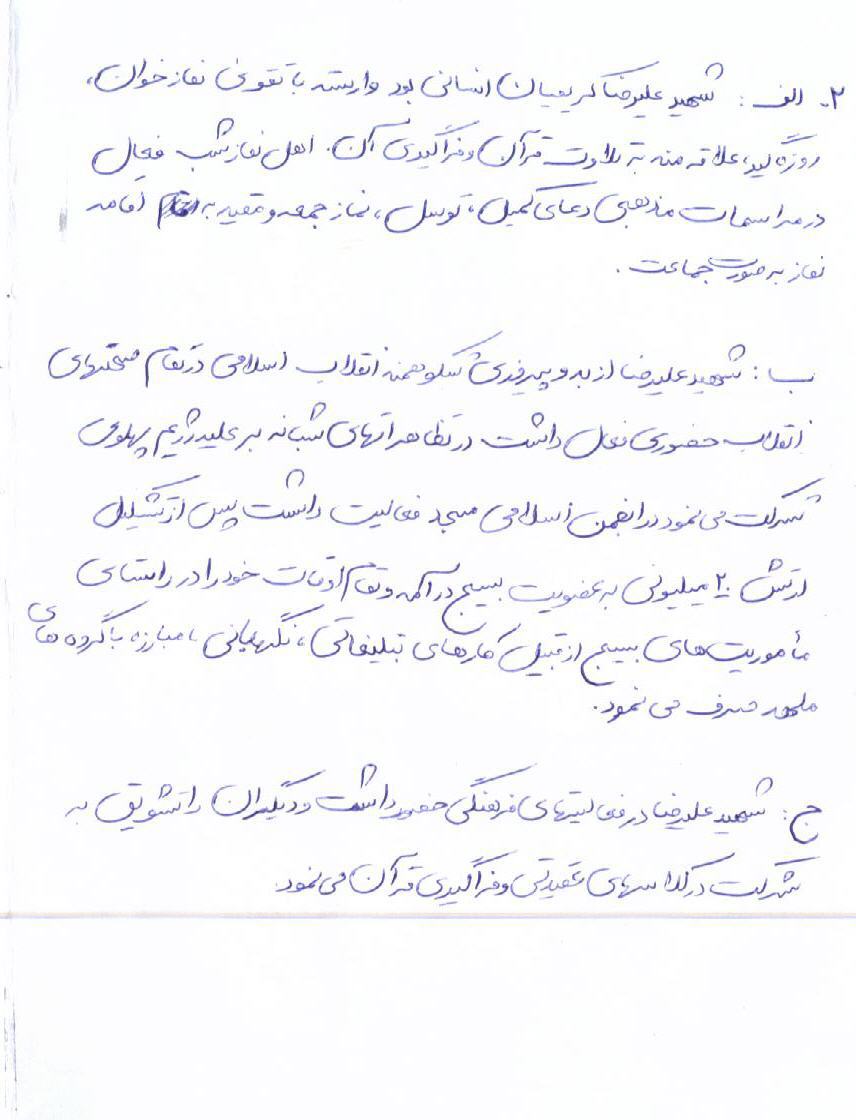 ۲. الف: شهید علیرضا کریمیان انسانی بود وارسته با تقوی نمازخوان،
روزه گیر، علاقه مند به تلاوت قرآن و فراگیری آن. اهل نماز شب فعال
در مراسمات مذهبی دعای کمیل، توسل، نماز جمعه و مقید به اقامه
نماز به صورت جماعت.
ب: شهید علیرضا از بدو پیروزی شکوهمند انقلاب اسلامی در تمام صحنهای
انقلاب حضوری فعال داشت در تظاهراتهای شبانه بر علیه رژیم پهلوی
شرکت می نمود در انجمن اسلامی مسجد فعالیت داشت پس از تشکیل
ارتش ۲۰ میلیونی به عضویت بسیج درآمد و تمام اوقات خود را در راستای
مأموریت های بسیج از قبیل کارهای تبلیغاتی، نگهبانی، مبارزه با گروه های
ملحد صرف می نمود.
ج: شهید علیرضا در فعالیتهای فرهنگی حضور داشت و دیگران را تشویق به
شرکت در کلاسهای عقیدتی و فراگیری قرآن می نمود.